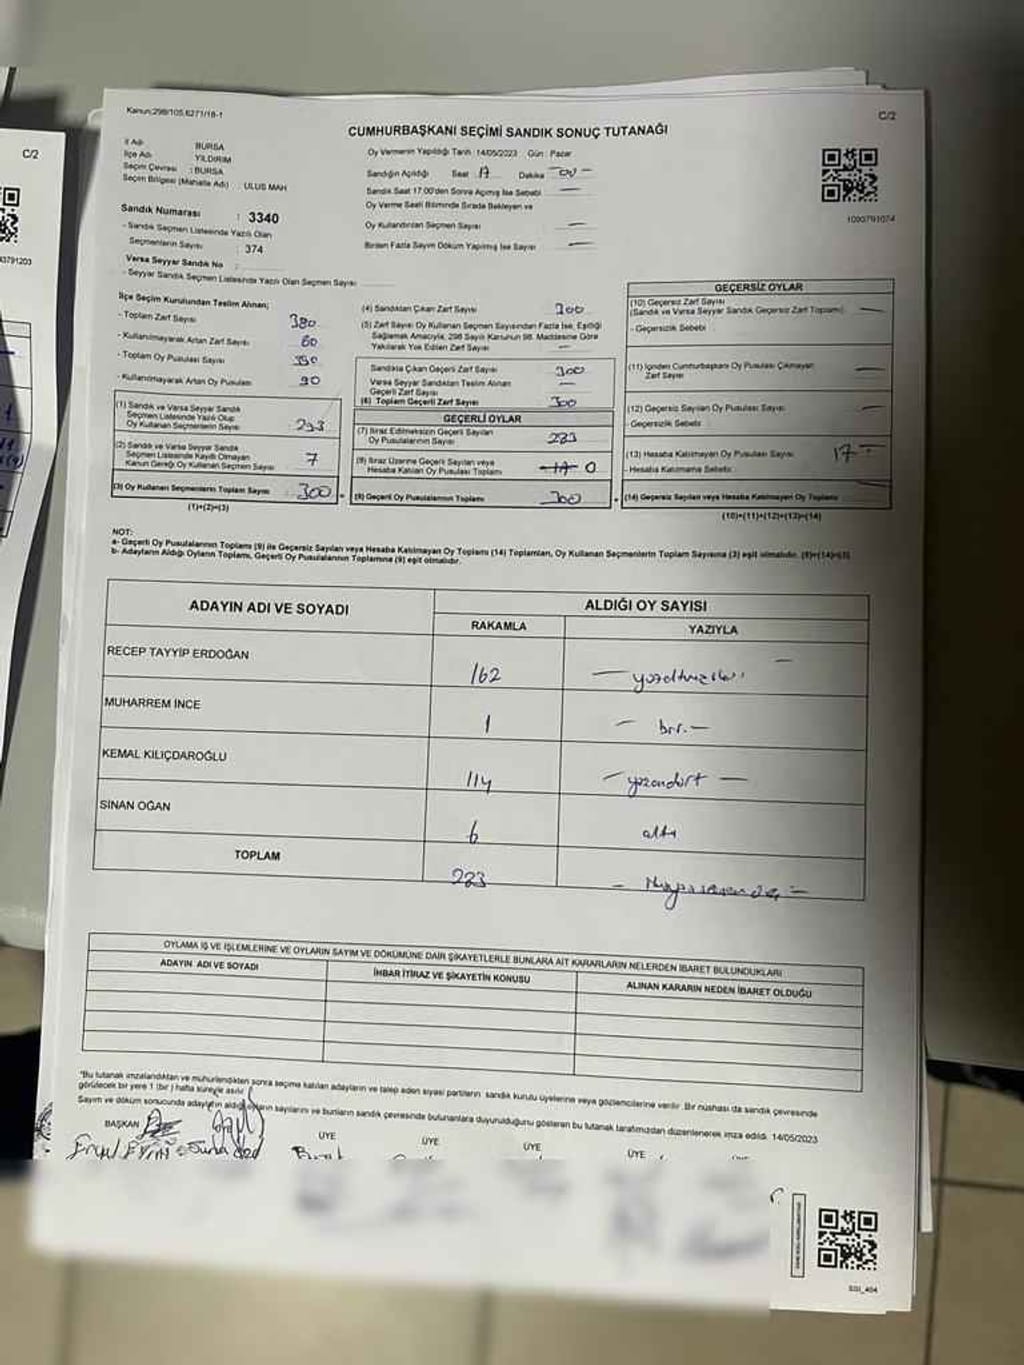 Kanun:298/105,6271/18-1
C/2
C/2
CUMHURBAŞKANI SEÇİMİ SANDIK SONUÇ TUTANAĞI
İl Adı : BURSA
İlçe Adı : YILDIRIM
Seçim Çevresi : BURSA
Seçim Bölgesi (Mahalle Adı) : ULUS MAH
Sandık Numarası : 3340
- Sandık Seçmen Listesinde Yazılı Olan
Seçmenlerin Sayısı : 374
Varsa Seyyar Sandık No :
- Seyyar Sandık Seçmen Listesinde Yazılı Olan Seçmen Sayısı
Oy Vermenin Yapıldığı Tarih : 14/05/2023 Gün : Pazar
Sandığın Açıldığı Saat 17 Dakika - 00 -
Sandık Saat 17.00'den Sonra Açılmış İse Sebebi —
Oy Verme Saati Bitiminde Sırada Bekleyen ve
Oy Kullandırılan Seçmen Sayısı —
Birden Fazla Sayım Döküm Yapılmış İse Sayısı —
1090791074
43791203
İlçe Seçim Kurulundan Teslim Alınan;
- Toplam Zarf Sayısı 380
- Kullanılmayarak Artan Zarf Sayısı 80
- Toplam Oy Pusulası Sayısı 390
- Kullanılmayarak Artan Oy Pusulası 90
(1) Sandık ve Varsa Seyyar Sandık
Seçmen Listesinde Yazılı Olup
Oy Kullanan Seçmenlerin Sayısı 293
(2) Sandık ve Varsa Seyyar Sandık
Seçmen Listesinde Kaydı Olmayan
Kanun Gereği Oy Kullanan Seçmen Sayısı 7
(3) Oy Kullanan Seçmenlerin Toplam Sayısı 300
(1)+(2)=(3)
(4) Sandıktan Çıkan Zarf Sayısı 300
(5) Zarf Sayısı Oy Kullanan Seçmen Sayısından Fazla İse, Eşitliği
Sağlamak Amacıyla, 298 Sayılı Kanunun 98. Maddesine Göre
Yakılarak Yok Edilen Zarf Sayısı —
Sandıkta Çıkan Geçerli Zarf Sayısı 300
Varsa Seyyar Sandıktan Teslim Alınan
Geçerli Zarf Sayısı —
(6) Toplam Geçerli Zarf Sayısı 300
GEÇERLİ OYLAR
(7) İtiraz Edilmeksizin Geçerli Sayılan
Oy Pusulalarının Sayısı 283
(8) İtiraz Üzerine Geçerli Sayılan veya
Hesaba Katılan Oy Pusulası Toplamı 17 0
(9) Geçerli Oy Pusulalarının Toplamı 300
GEÇERSİZ OYLAR
(10) Geçersiz Zarf Sayısı
(Sandık ve Varsa Seyyar Sandık Geçersiz Zarf Toplamı) —
- Geçersizlik Sebebi :
(11) İçinden Cumhurbaşkanı Oy Pusulası Çıkmayan
Zarf Sayısı —
(12) Geçersiz Sayılan Oy Pusulası Sayısı —
- Geçersizlik Sebebi:
(13) Hesaba Katılmayan Oy Pusulası Sayısı 17 -
- Hesaba Katılmama Sebebi:
(14) Geçersiz Sayılan veya Hesaba Katılmayan Oy Toplamı
(10)+(11)+(12)+(13)=(14)
NOT:
a- Geçerli Oy Pusulalarının Toplamı (9) ile Geçersiz Sayılan veya Hesaba Katılmayan Oy Toplamı (14) Toplamları, Oy Kullanan Seçmenlerin Toplam Sayısına (3) eşit olmalıdır. (9)+(14)=(3)
b- Adayların Aldığı Oyların Toplamı, Geçerli Oy Pusulalarının Toplamına (9) eşit olmalıdır.
ADAYIN ADI VE SOYADI ALDIĞI OY SAYISI
RAKAMLA YAZIYLA
RECEP TAYYİP ERDOĞAN 162 — yüzaltmışiki —
MUHARREM İNCE 1 — bir —
KEMAL KILIÇDAROĞLU 114 — yüzondört —
SİNAN OĞAN 6 altı
TOPLAM 283 — ikiyüzseksenüç —
OYLAMA İŞ VE İŞLEMLERİNE VE OYLARIN SAYIM VE DÖKÜMÜNE DAİR ŞİKAYETLERLE BUNLARA AİT KARARLARIN NELERDEN İBARET BULUNDUKLARI
ADAYIN ADI VE SOYADI İHBAR İTİRAZ VE ŞİKAYETİN KONUSU ALINAN KARARIN NEDEN İBARET OLDUĞU
*Bu tutanak imzalandıktan ve mühürlendikten sonra seçime katılan adayların ve talep eden siyasi partilerin sandık kurulu üyelerine veya gözlemcilerine verilir. Bir nüshası da sandık çevresinde
görülecek bir yere 1 (bir) hafta süreyle asılır.
Sayım ve döküm sonucunda adayların aldığı oyların sayılarını ve bunların sandık çevresinde bulunanlara duyurulduğunu gösteren bu tutanak tarafımızdan düzenlenerek imza edildi. 14/05/2023
BAŞKAN ÜYE ÜYE ÜYE ÜYE
SGI_404